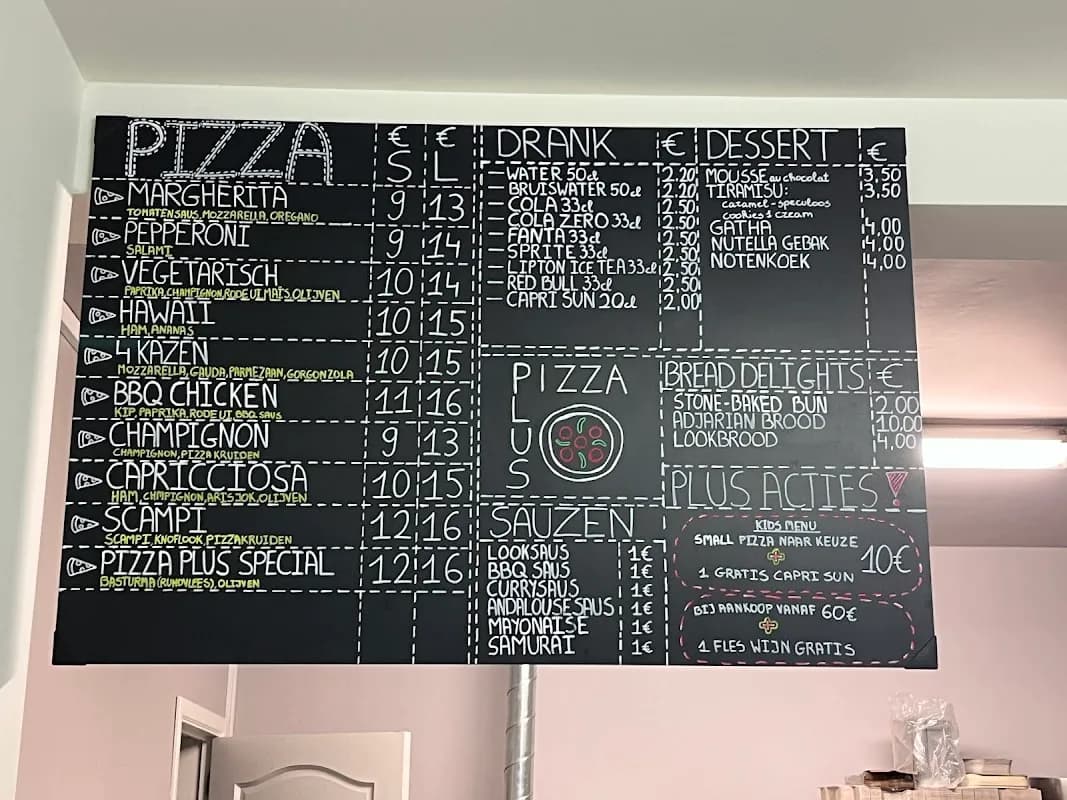 PIZZA € S € L
MARGHERITA 9 13
TOMATENSAUS, MOZZARELLA, OREGANO
PEPPERONI 9 14
SALAMI
VEGETARISCH 10 14
PAPRIKA, CHAMPIGNON, RODE UI, MAÏS, OLIJVEN
HAWAII 10 15
HAM, ANANAS
4 KAZEN 10 15
MOZZARELLA, GAUDA, PARMEZAAN, GORGONZOLA
BBQ CHICKEN 11 16
KIP, PAPRIKA, RODE UI, BBQ SAUS
CHAMPIGNON 9 13
CHAMPIGNON, PIZZA KRUIDEN
CAPRICCIOSA 10 15
HAM, CHAMPIGNON, ARTISJOK, OLIJVEN
SCAMPI 12 16
SCAMPI, KNOFLOOK, PIZZAKRUIDEN
PIZZA PLUS SPECIAL 12 16
BASTURMA (RUNDVLEES), OLIJVEN
DRANK €
— WATER 50cl 2.20
— BRUISWATER 50cl 2.20
— COLA 33cl 2.50
— COLA ZERO 33cl 2.50
— FANTA 33cl 2.50
— SPRITE 33cl 2.50
— LIPTON ICE TEA 33cl 2,50
— RED BULL 33cl 2,50
— CAPRI SUN 20cl 2,00
DESSERT €
MOUSSE au chocolat 3,50
TIRAMISU: 3,50
caramel-speculoos
cookies & cream
GATHA 4,00
NUTELLA GEBAK 4,00
NOTENKOEK 4,00
PIZZA
PLUS
BREAD DELIGHTS €
STONE-BAKED BUN 2.00
ADJARIAN BROOD 10.00
LOOKBROOD 4,00
SAUZEN
LOOKSAUS 1€
BBQ SAUS 1€
CURRYSAUS 1€
ANDALOUSE SAUS 1€
MAYONAISE 1€
SAMURAI 1€
PLUS ACTIES!
KIDS MENU
SMALL PIZZA NAAR KEUZE
+ 10€
1 GRATIS CAPRI SUN
BIJ AANKOOP VANAF 60€
+
1 FLES WIJN GRATIS